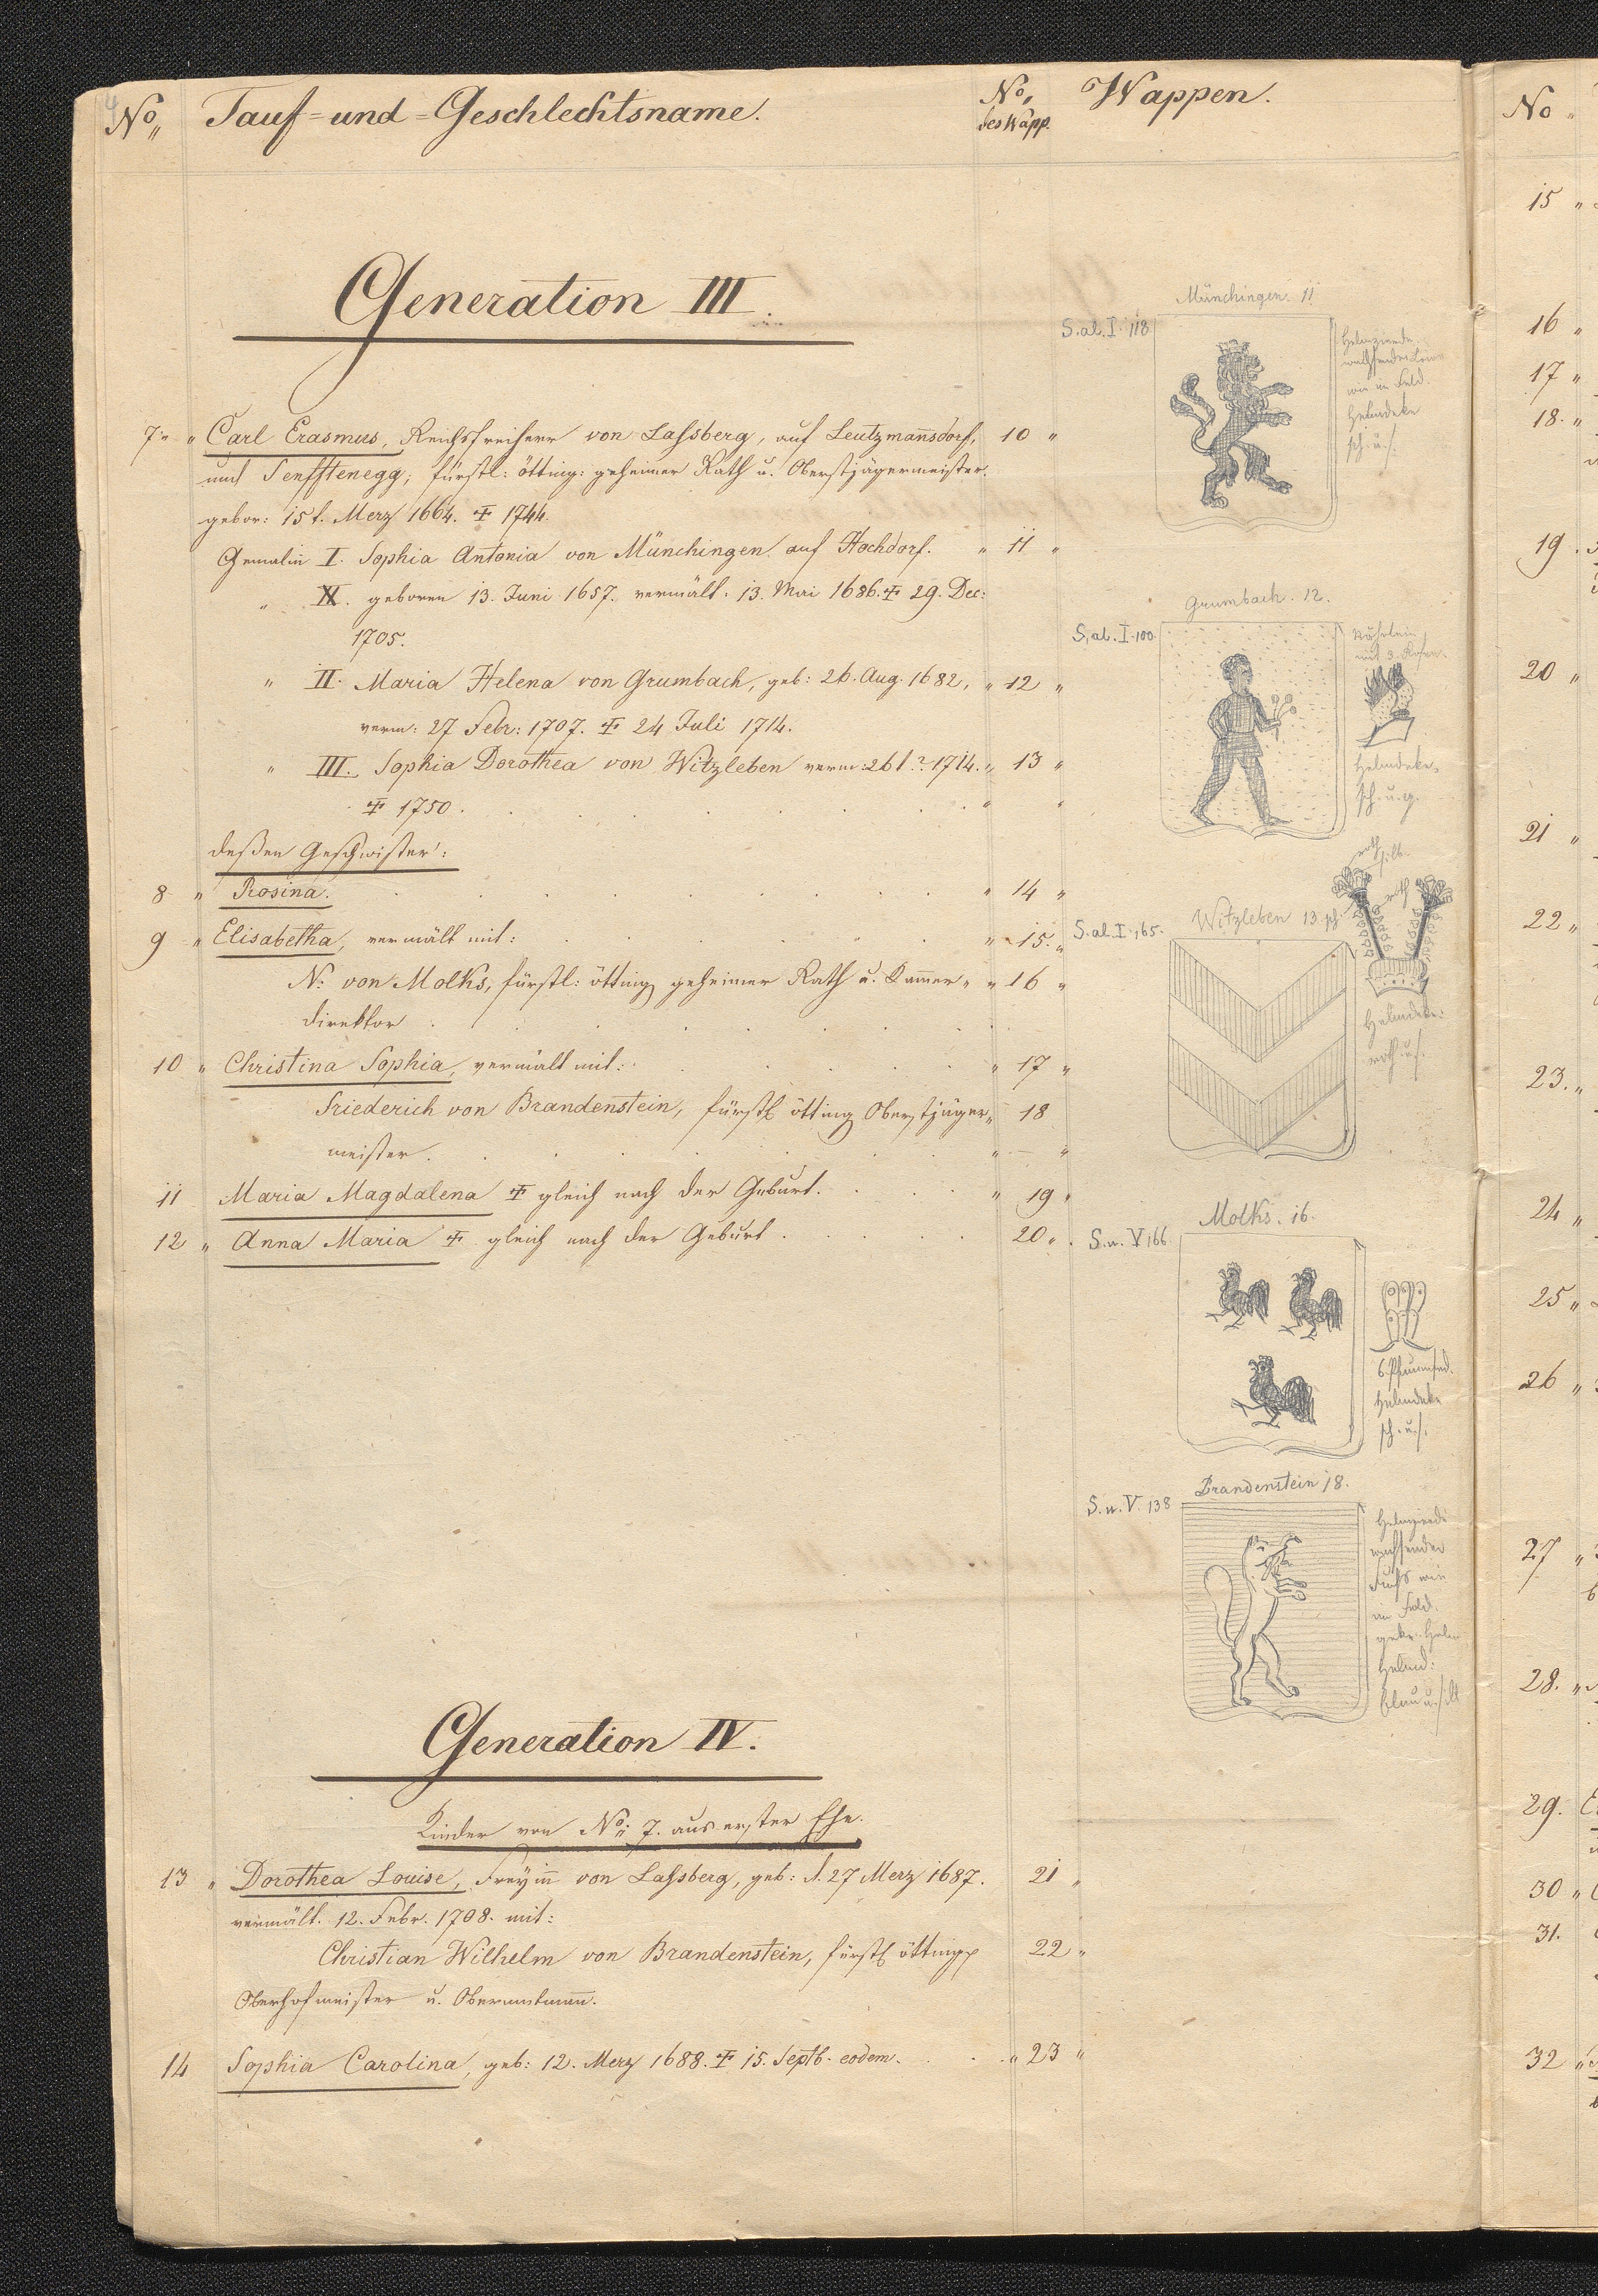 4
No„ Tauf=und=Geschlechtsname. No„ des Wapp. Wappen.
Generation III.
7„ „ Carl Erasmus, Reichsfreiherr von Laßsberg, auf Leutzmañsdorf, 10 „
und Senfftenegg; fürstl: ötting: geheimer Rath u. Oberstjägermeister.
gebor: 15t. Merz 1664. ✝ 1744.
Gemalin I. Sophia Antonia von Münchingen auf Hochdorf. „ 11 „
„ geboren 13. Juni 1657. vermält. 13. Mai 1686. ✝ 29. Dec:
1705.
„ II. Maria Helena von Grumbach, geb: 26. Aug. 1682, „ 12 „
verm: 27 Febr: 1707. ✝ 24 Juli 1714.
„ III. Sophia Dorothea von Witzleben verm: 26t. ? 1714. „ 13 „
✝ 1750.
deßen Geschwister:
8 „ Rosina. „ 14 „
9 „ Elisabetha, vermält mit: „ 15. „
N: von Molks, fürstl: ötting geheimer Rath u. Kam̄er„ „ 16 „
direktor
10 „ Christina Sophia, vermält mit: „ 17 „
Friederich von Brandenstein, fürstl ötting Oberstjäger„ 18
meister. „ — „
11 Maria Magdalena ✝ gleich nach der Geburt. „ 19 „
12 „ Anna Maria ✝ gleich nach der Geburt. 20 „
Generation IV.
Kinder von No„ 7. aus erster Ehe.
13 „ Dorothea Louise, Freyiñ von Laßsberg, geb: d. 27 Merz 1687. 21 „
vermält. 12. Febr. 1708. mit:
Christian Wilhelm von Brandenstein, fürstl ötting 22 „
Oberhofmeister u. Oberamtmañ.
14 Sophia Carolina, geb: 12. Merz 1688. ✝ 15. Septb. eodem. „ 23 „
Münchingen. 11
S. al. I. 118
Helmzierde.
wachsender Löwe
wie im Feld.
Helmdeke
sch. u. s.
Grumbach. 12.
S. al. I. 100.
mit 3. Rosen.
Helmdeke.
sch. u. g.
roth
silb.
roth
Witzleben 13.
S. al. I. 165.
Helmdeke:
roth u. s.
Molks. 16.
S. n. V. 166
6. Pfauenfed.
Helmdeke
sch. u. s.
Brandenstein 18.
S. n. V. 138
Helmzierde
wachsender
Fuchs wie
im Feld.
gekr. Helm
Helmd:
blau u. silb
No „
15 „
16 „
17 „
18. „
19.
20 „
21 „
22 „
23. „
24 „
25 „
26 „
27 „
28. „
29.
30 „
31.
32 „